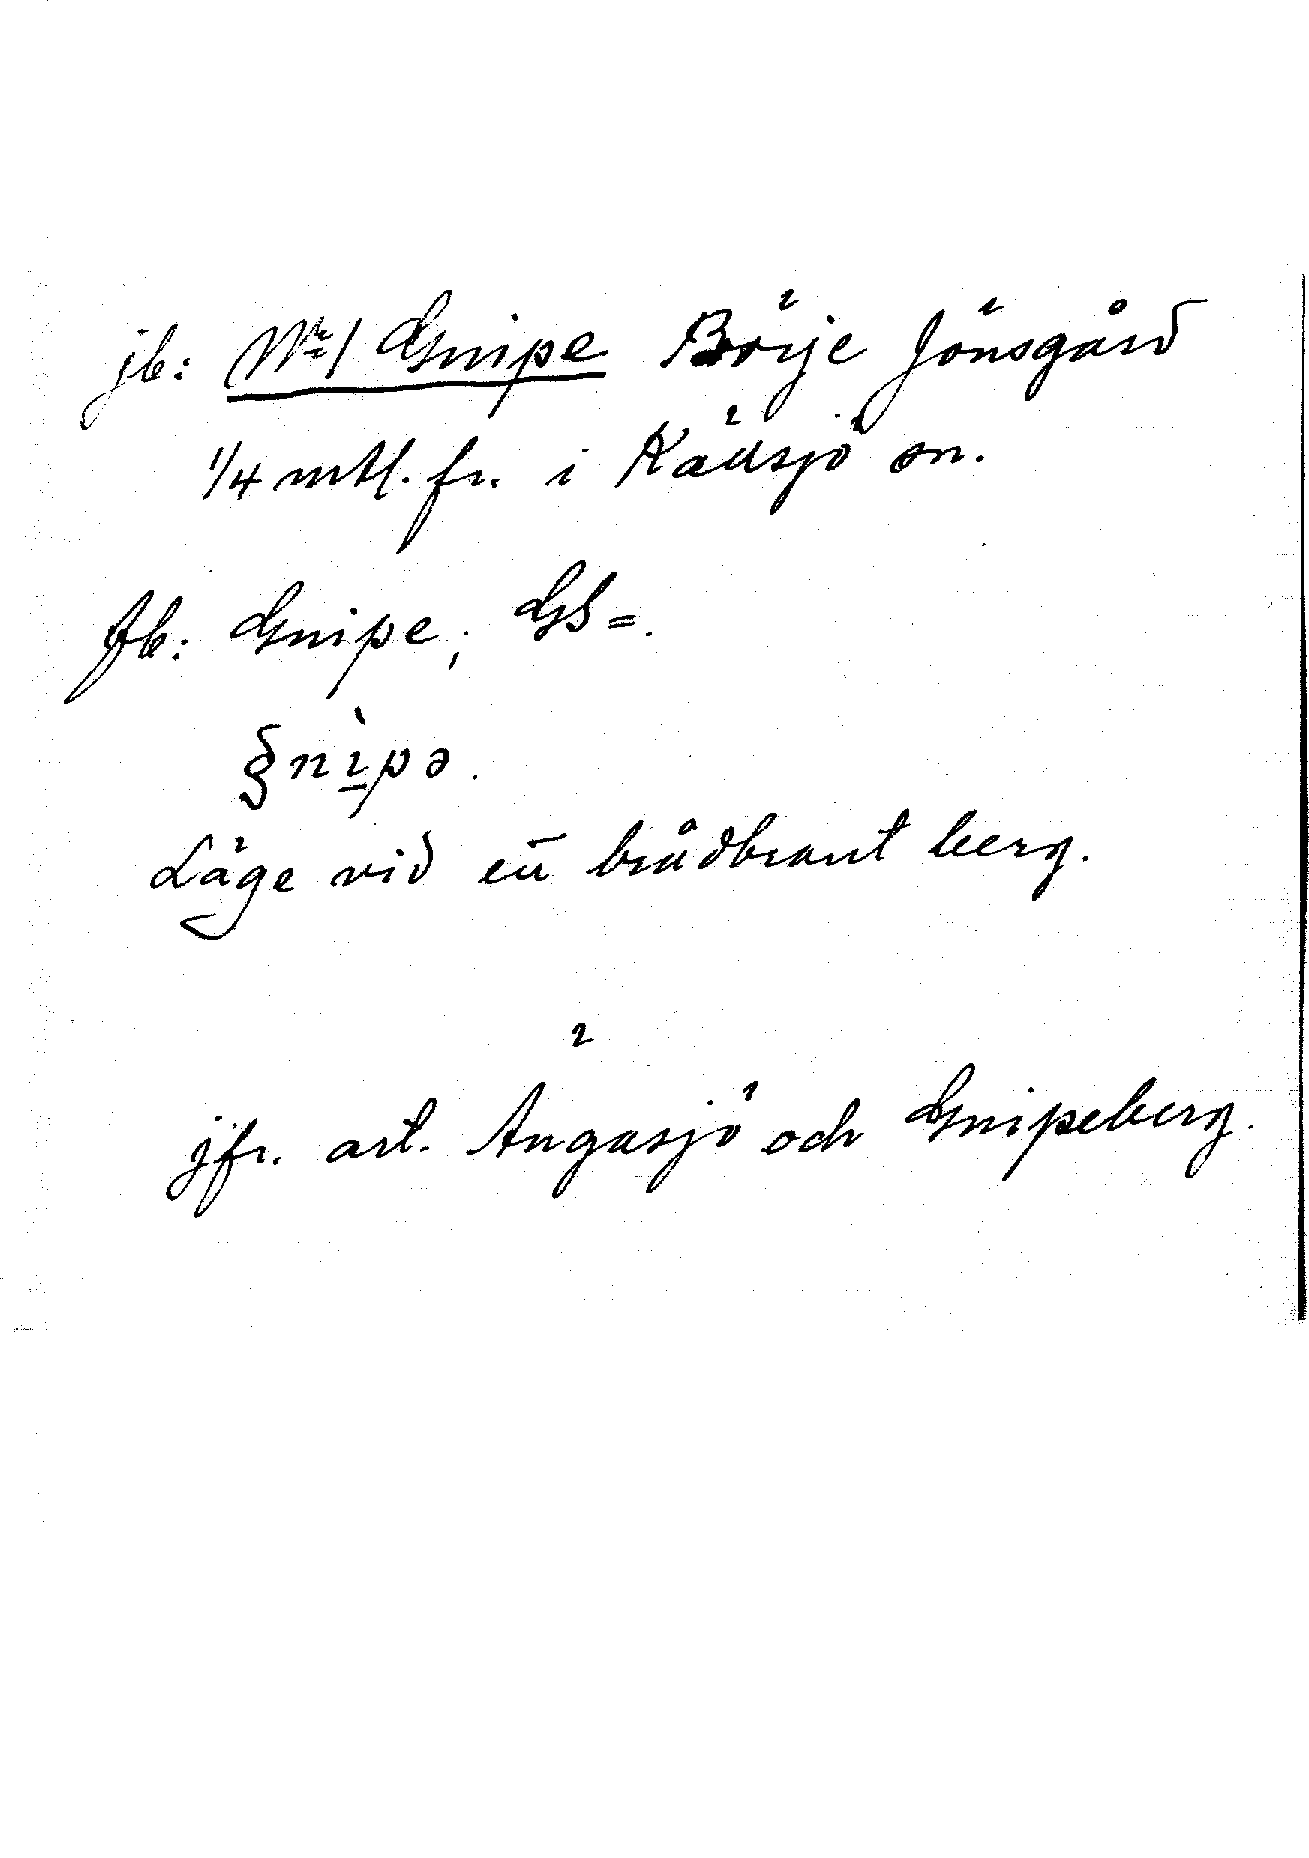 jb: No 1 Gnipe Börje Jönsgård
1/4 mtl. fr. i Källsjö sn.
fb: Gnipe; GS =.
§nìpə.
Läge vid en brådbrant berg.
jfr. art. Ängasjö och Gnipeberg.